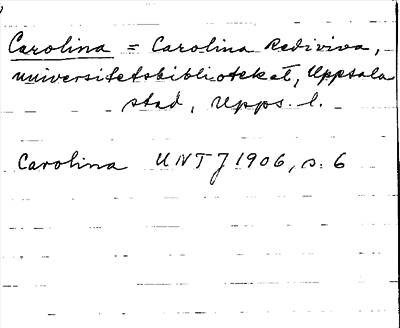 Carolina = Carolina Rediviva,
universitetsbiblioteket, Uppsala
stad, Upps. l.
Carolina UNT J 1906, s. 6